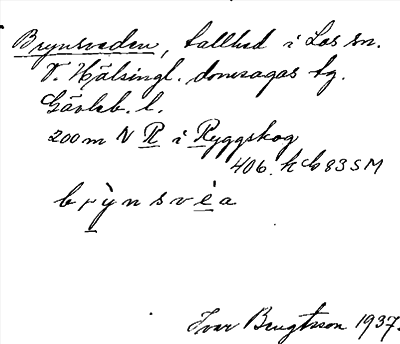 Brynsveden, tallhed i Los sn.
V. Hälsingl. domsagas tg.
Gävleb. l.
200 m N R i Ryggskog
406. k cb 83 S M
brỳnsvèa
Ivar Bengtsson 1937.